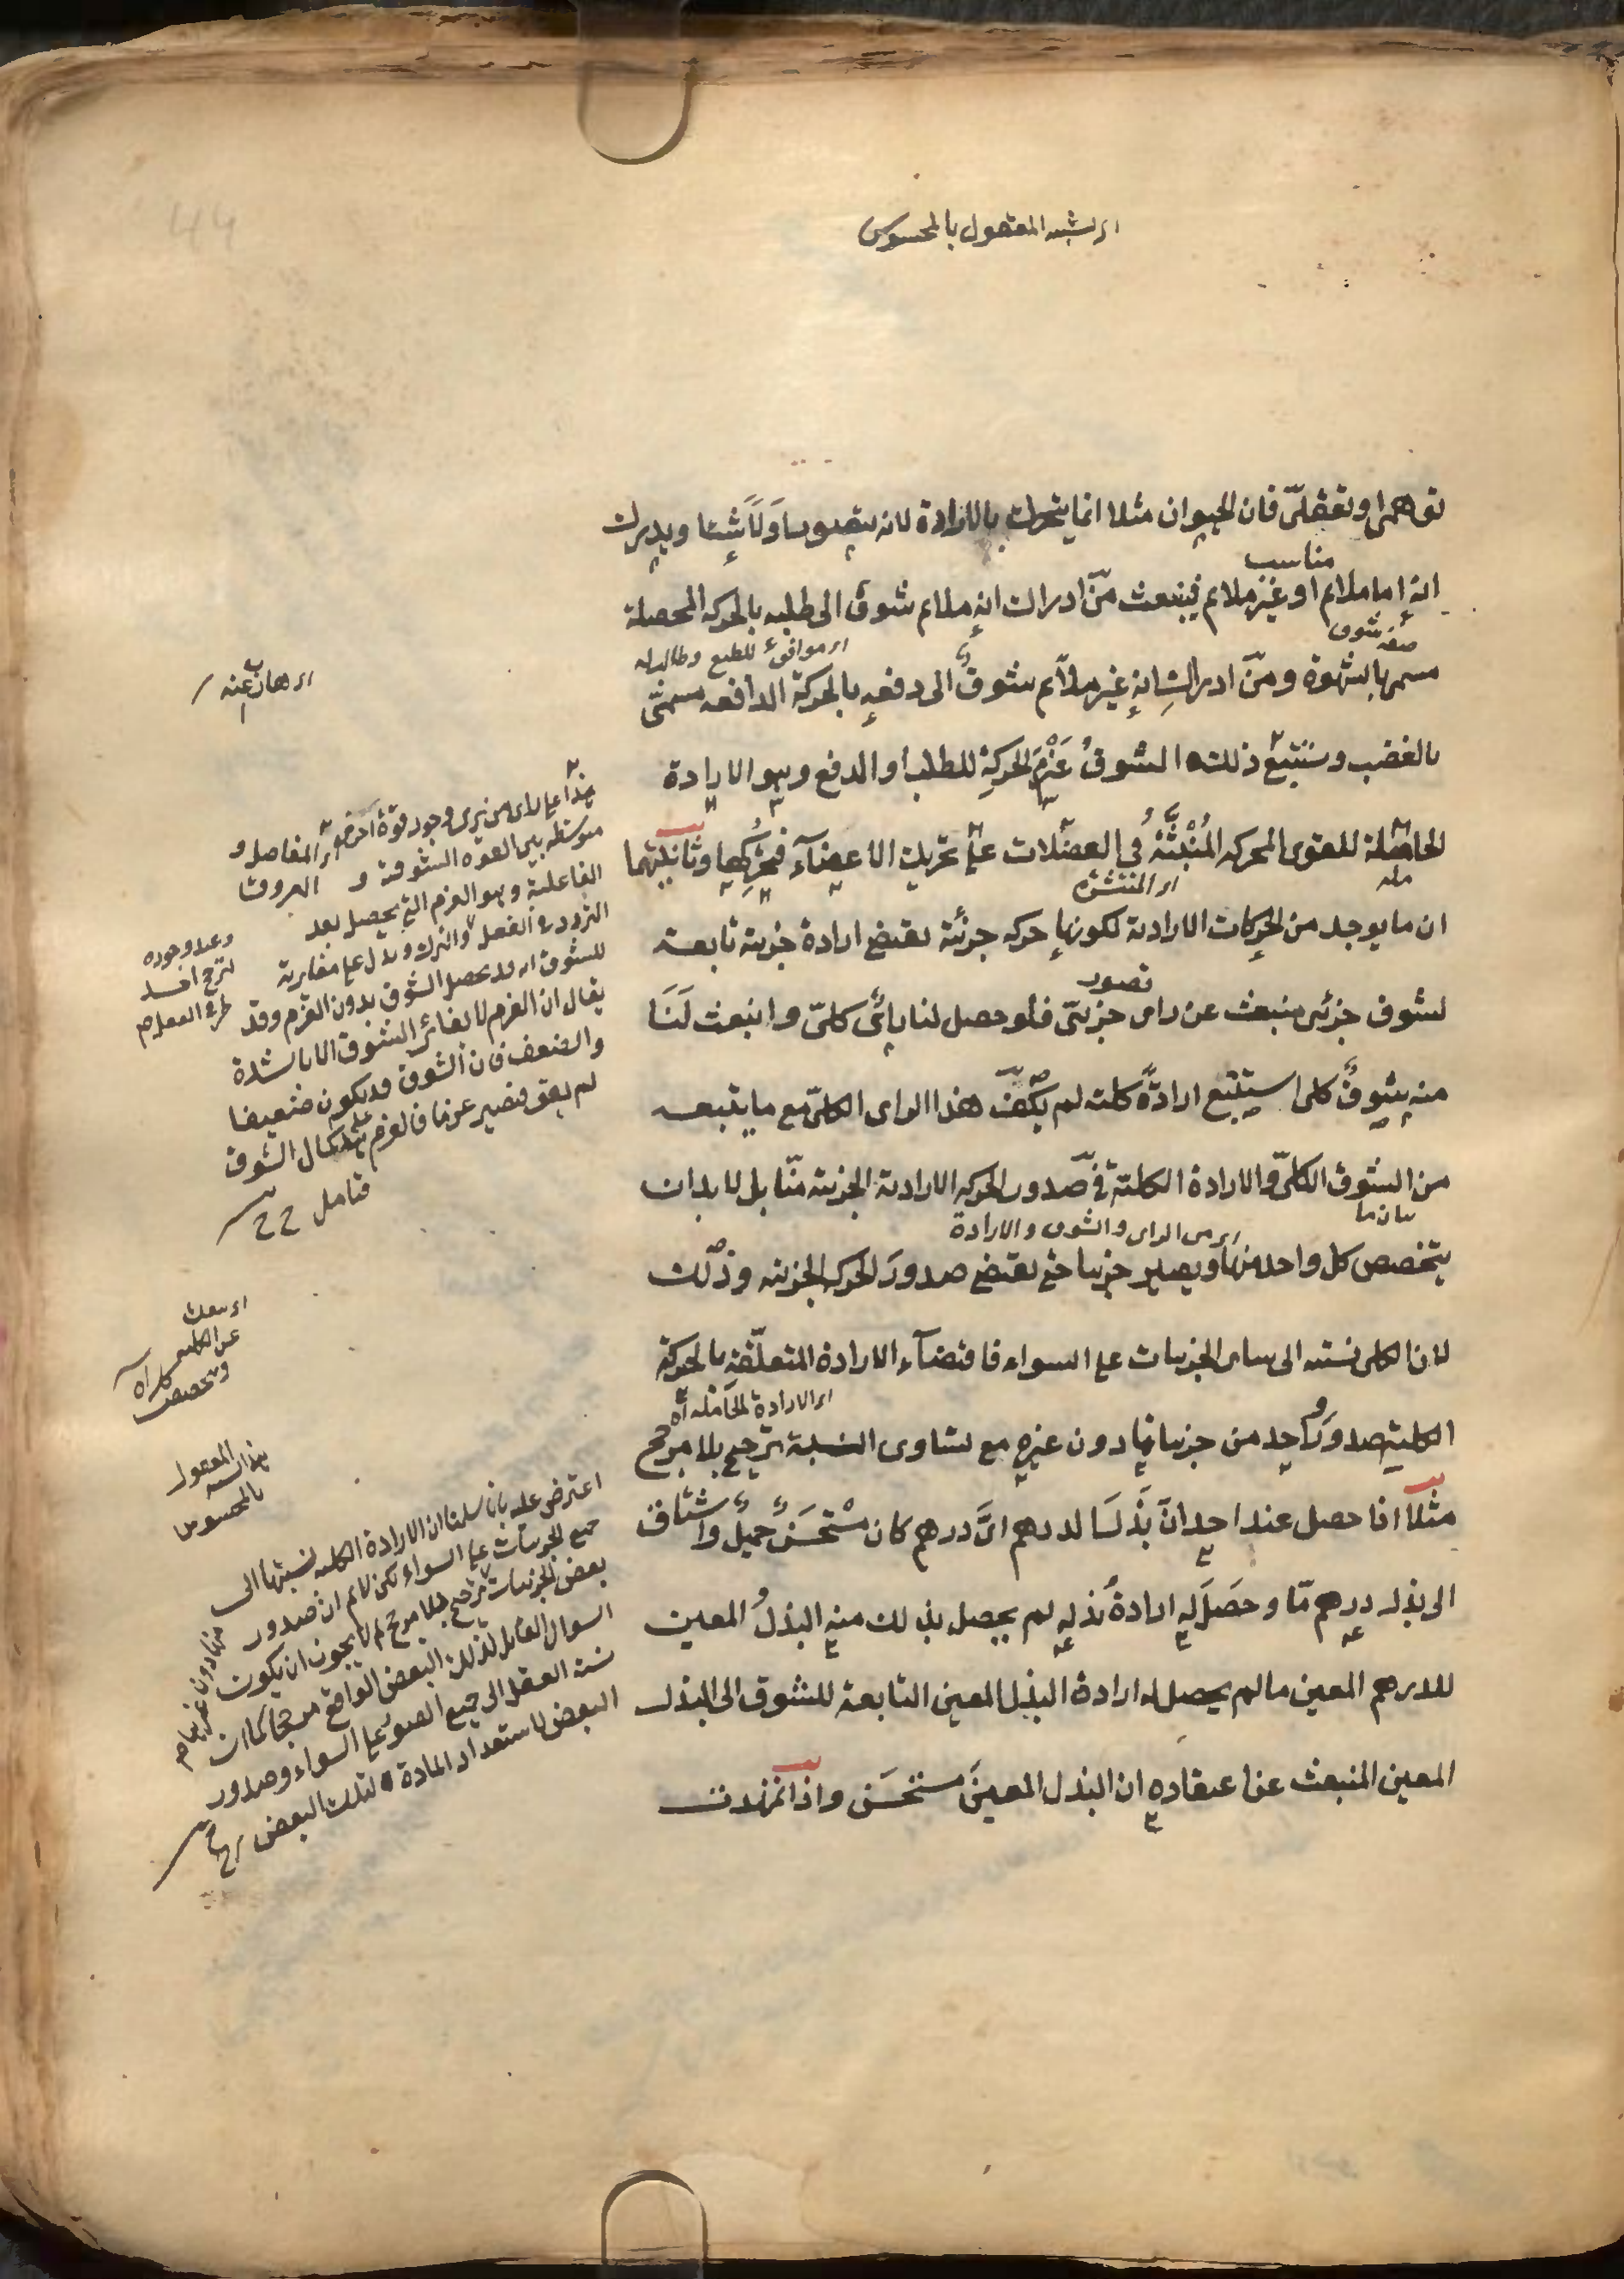 اى لشبه المعقول بالمحسوس
توهمى او تعقلىّ فان الحيوان مثلا انما يتحرك بالارادة لانه يتصور اوّلا شيئا ويدرك
مناسب
انه اما ملائم او غير ملائم فينبعث منّ ادراك انه ملائم شوق الى طلبه بالحركه المحصلة
صفة شوق
اى موافق للطبع
مسمى بالشهوة ومنّ ادراك انه غير ملآئم شوقٌ الى دفعه بالحركة الدافعه مسمىّ
بالغضب ويستتبع ذلك الشوقُ عَزْمَ الحركةِ للطلب او الدفع وهو الارادة
الحاملة للقوى المحركه المُنْبَثَّةُ فى العضلات على تحريك الاعضآء فيحركها وثانيتهما
اى المنتشرة
ان ما يوجد من الحركات الارادية لكونها حركه جزئية يقتضى ارادة جزئية تابعة
تصور
لشوق جزئى منبعث عن راى جزئىّ فلو حصل لنا رائ كلىّ وانبعث لَنَا
منه شوقٌ كلى استتبع ارادةً كلية لم يكف هذا الراى الكلىّ مع ما يتبعه
من الشوق الكلىّ والارادة الكلية فى صدور الحركه الارادية الجزئية منّا بل لا بد ان
بيان ما
اى من الراى والشوق والارادة
يتخصص كل واحد منها ويصير جزئيا حتى يقتضى صدورَ الحركه الجزئيه وذلك
لان الكلى نسبته الى سائر الجزئيات على السواء فاقتضآء الارادة المتعلّقة بالحركة
اى الارادة الحاملة اه
الكلية صدورَ واحد من جزئياتها دون غيره مع تساوى النسبة ترجيح بلا مرجح
مثلاً اذا حصل عند احد انّ بَذْلَنا لدرهم اىَّ درهم كان مُسْتَحْسَنٌ جميلٌ واشتاق
الى بذل درهم مّا وحَصَلَ له ارادةُ بذله لم يحصل بذلك منه البذلُ المعين
للدرهم المعين ما لم يحصل له ارادة البذل المعين التابعة للشوق الى البذل
المعين المنبعث عن اعتقاده ان البذل المعينَ مستحسَن واذا تمهدت
هذا على راى من يرى وجود قوة اخرى
متوسطه بين القوه الشوقية و
الفاعلية وهو العزم الذى يحصل بعد
التردد فى الفعل والترك ويدل على مغايرته
للشوق انه قد يحصل الشوق بدون العزم وقد
يقال ان العزم لا يغاير الشوق الا بالشدة
والضعف فان الشوق قد يكون ضعيفا
لم يقو فيصير عزما فالعزم كمال الشوق
فتامل
المفاصل و
العروق
وعند وجوده
يترجح احد
طرفى
عن الكليه
وتخصص
هذا
المعقول
بالمحسوس
اعترض عليه بانا سلمنا ان الارادة الكليه نسبتها الى
جميع الجزئيات على السواء لكن لا نم ان صدور
بعض الجزئيات ترجيح بلا مرجح لم لا يجوز ان يكون
منها دون غيرها
السوال القابل لذلك البعض الواقع مرجحا كما ان
نسبة العقل الى جميع الصور على السواء وصدور
البعض لاستعداد المادة لذلك البعض